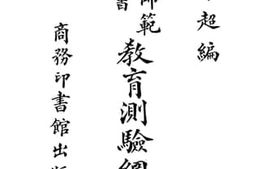 超編
師範
書
教育測驗綱
商務印書館出版